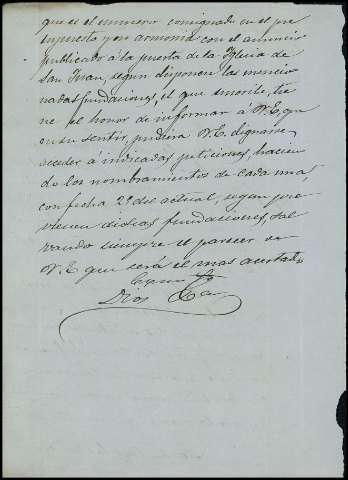 que es el numero consignado en el pre
supuesto y en armonia con el anuncio
publicado á la puerta de la Iglesia de
San Juan, segun disponen las mencio
nadas fundaciones, el que suscribe, tie
ne el honor de informar á V.E. que
en su sentir, pudiera V.E. dignarse
acceder á indicadas peticiones, hacien
do los nombramientos de cada una
con fecha 29 del actual, segun pre
vienen dichas fundaciones, sal
vando siempre el parecer de
V.E. que será el mas acertado
Dios